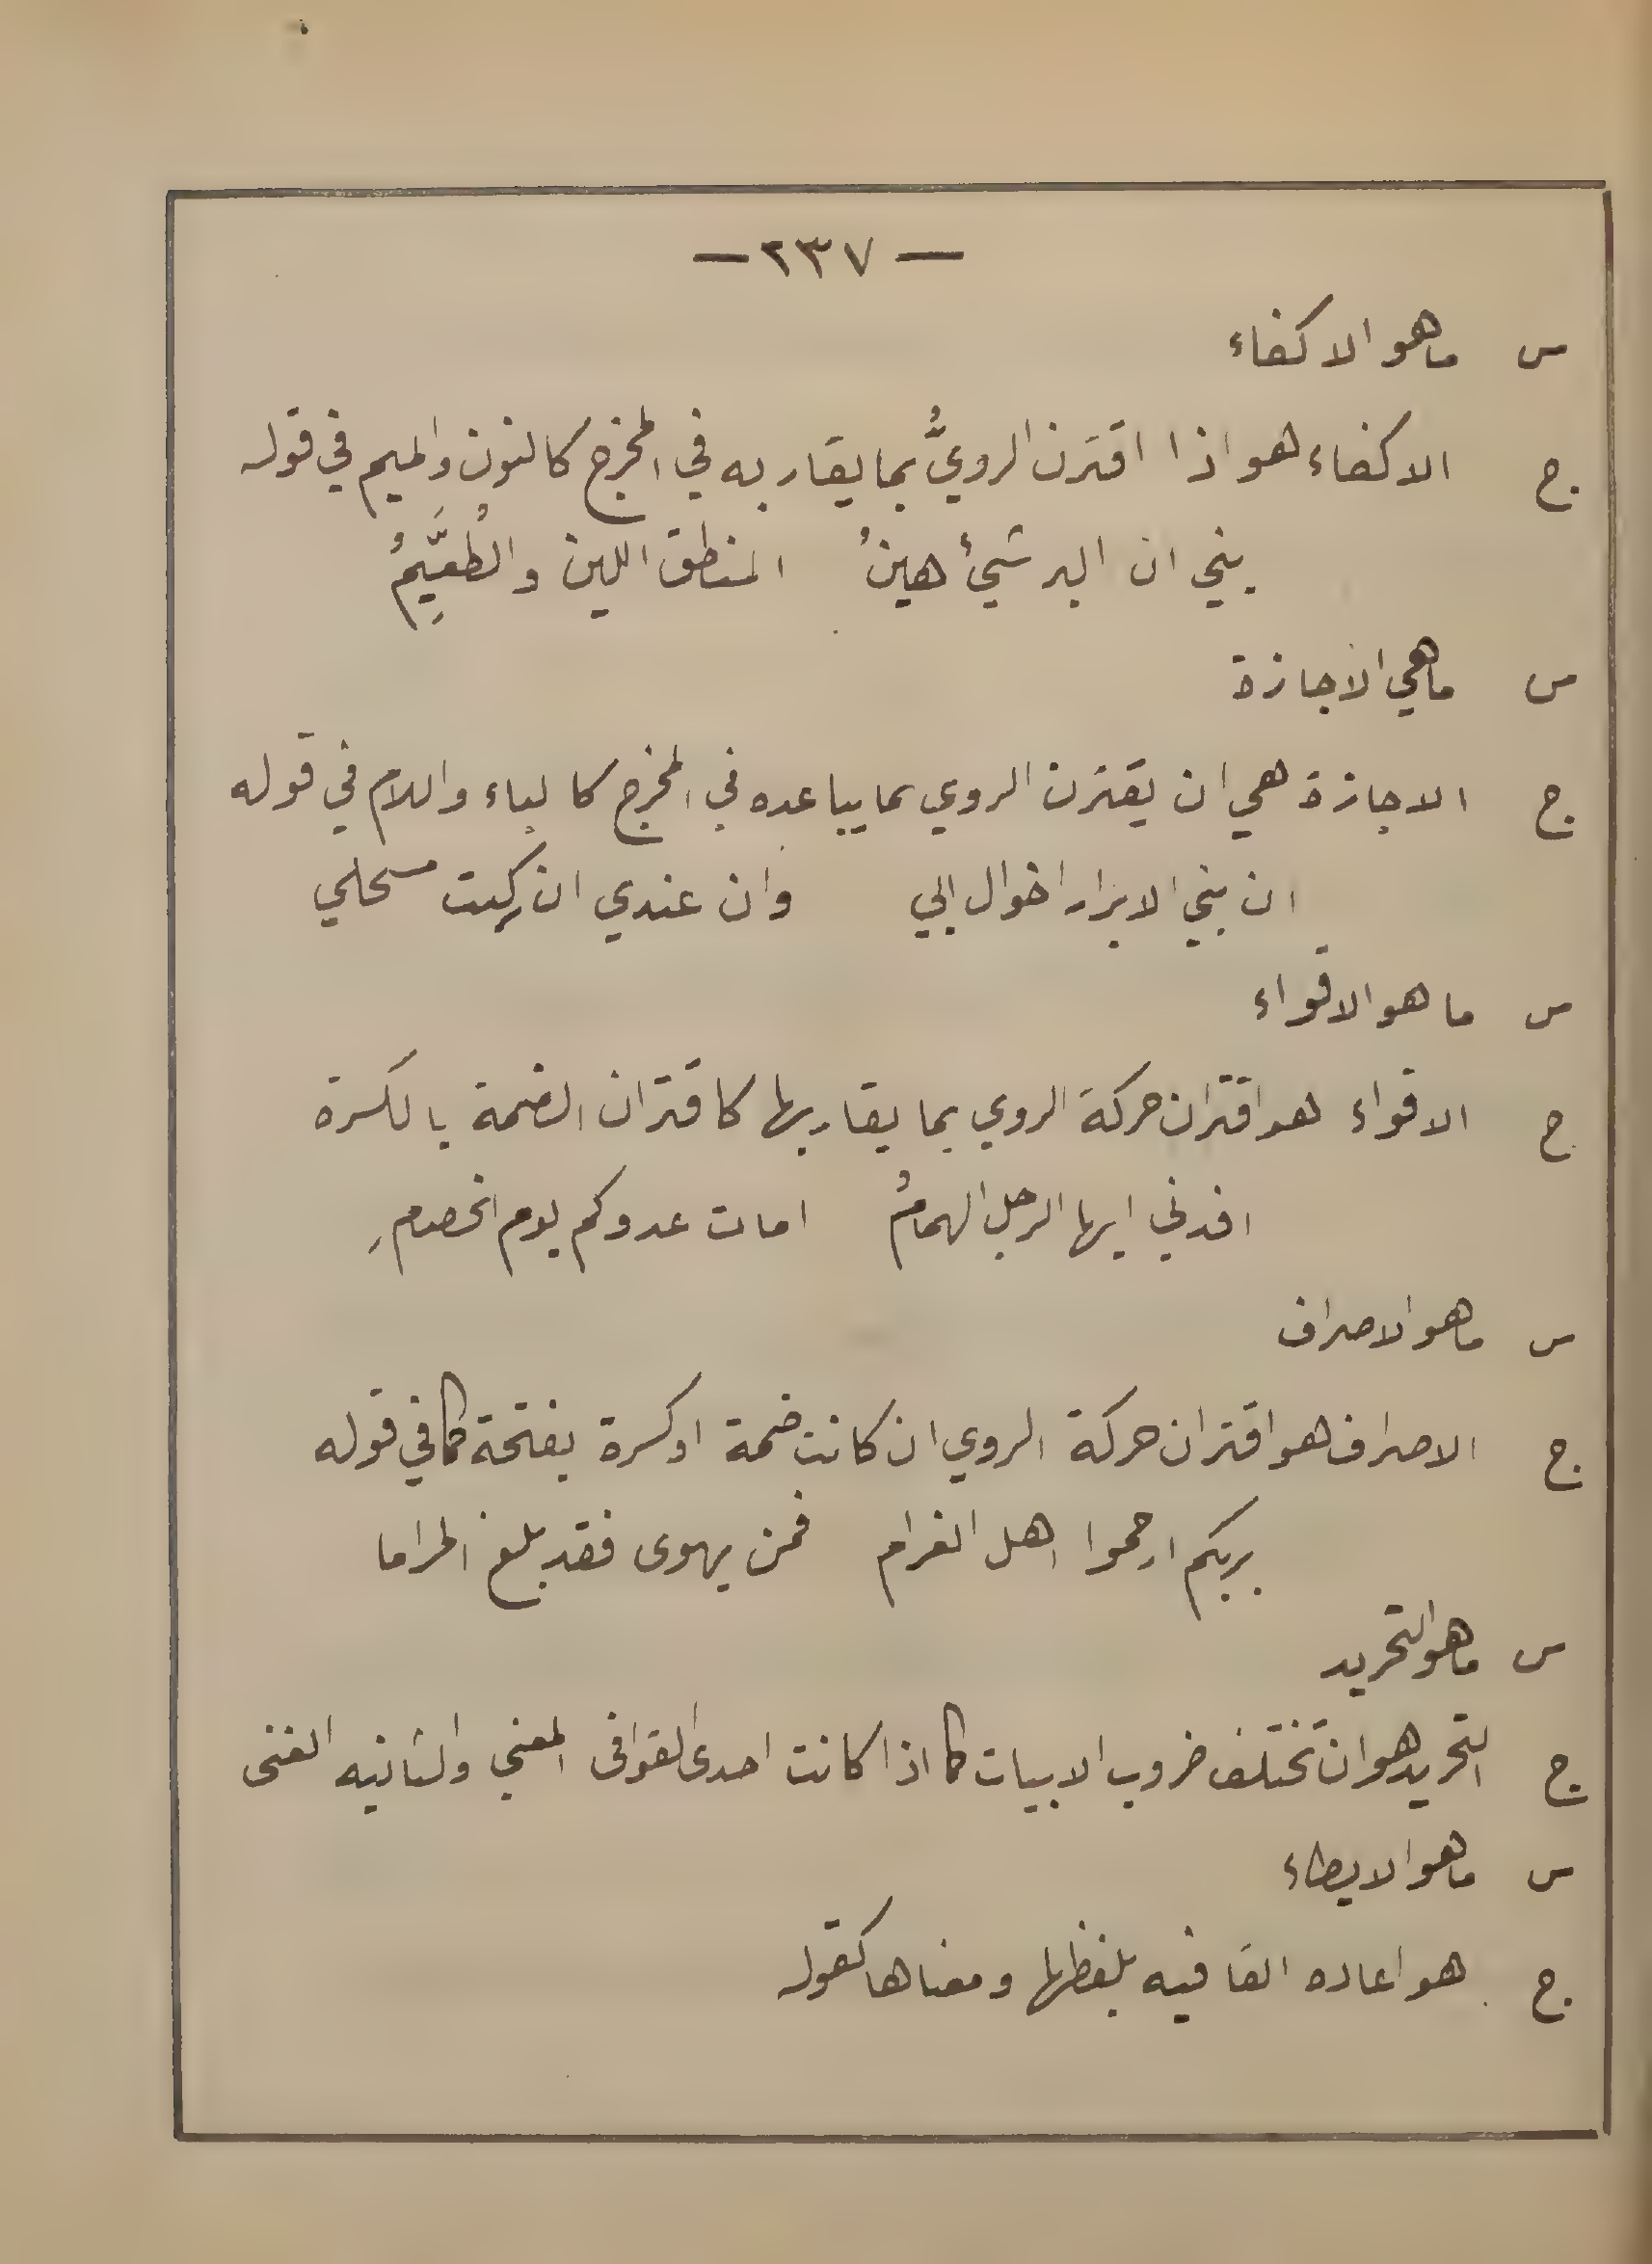 — ٢٣٧ —
س ماهو الاكفاء
ج الاكفاء هو اذا اقترن الرويُّ بما يقاربه في المخرج كالنون والميم في قوله
بني ان البر شيئ هينُ المنطق اللين والطُعَيِّمُ
س ماهي الاجازة
ج الاجازة هي ان يقترن الروي بما يباعده في المخرج كالباء واللام في قوله
ان بني الابرار اخوال ابي وان عندي ان ركبت مسحلي
س ما هو الاقواء
ج الاقواء هو اقتران حركة الروي بما يقاربها كاقتران الضمة بالكسرة
افدني ايها الرجل الهمامُ امات عدوكم يوم الخصامِ
س ماهو الاصراف
ج الاصراف هو اقتران حركة الروي ان كانت ضمة او كسرة بفتحة كما في قوله
بربكم ارحموا اهل الغرام فمن يهوى فقد بلغ المراما
س ماهو التحريد
ج التحريد هو ان تختلف ضروب الابيات كما اذا كانت احدى القوافى المغني والثانيه الغنى
س ماهو الايطاء
ج هو اعاده القافيه بلفظها ومعناها كقوله